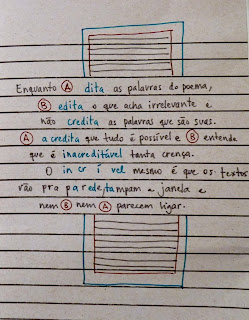 Enquanto Ⓐ dita as palavras do poema,
Ⓑ edita o que acha irrelevante e
não credita as palavras que são suas.
Ⓐ acredita que tudo é possível e Ⓑ entende
que é inacreditável tanta crença.
O in cr í vel mesmo é que os textos
vão pra parede, tampam a janela e
nem Ⓑ nem Ⓐ parecem ligar.